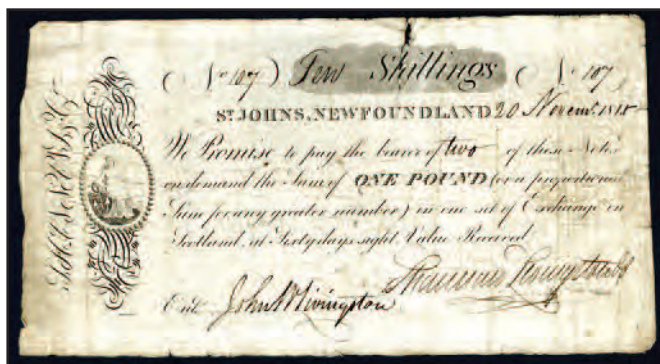 ( No 107 ) Ten Shillings ( No 107
ST JOHNS, NEWFOUNDLAND 20 Novemr. 1815
We Promise to pay the bearer of two of these Notes
on demand the Sum of ONE POUND (or a proportional
Sum for any greater number) in one set of Exchange on
Scotland, at Sixty days sight, Value Received.
Entd. John Livingston